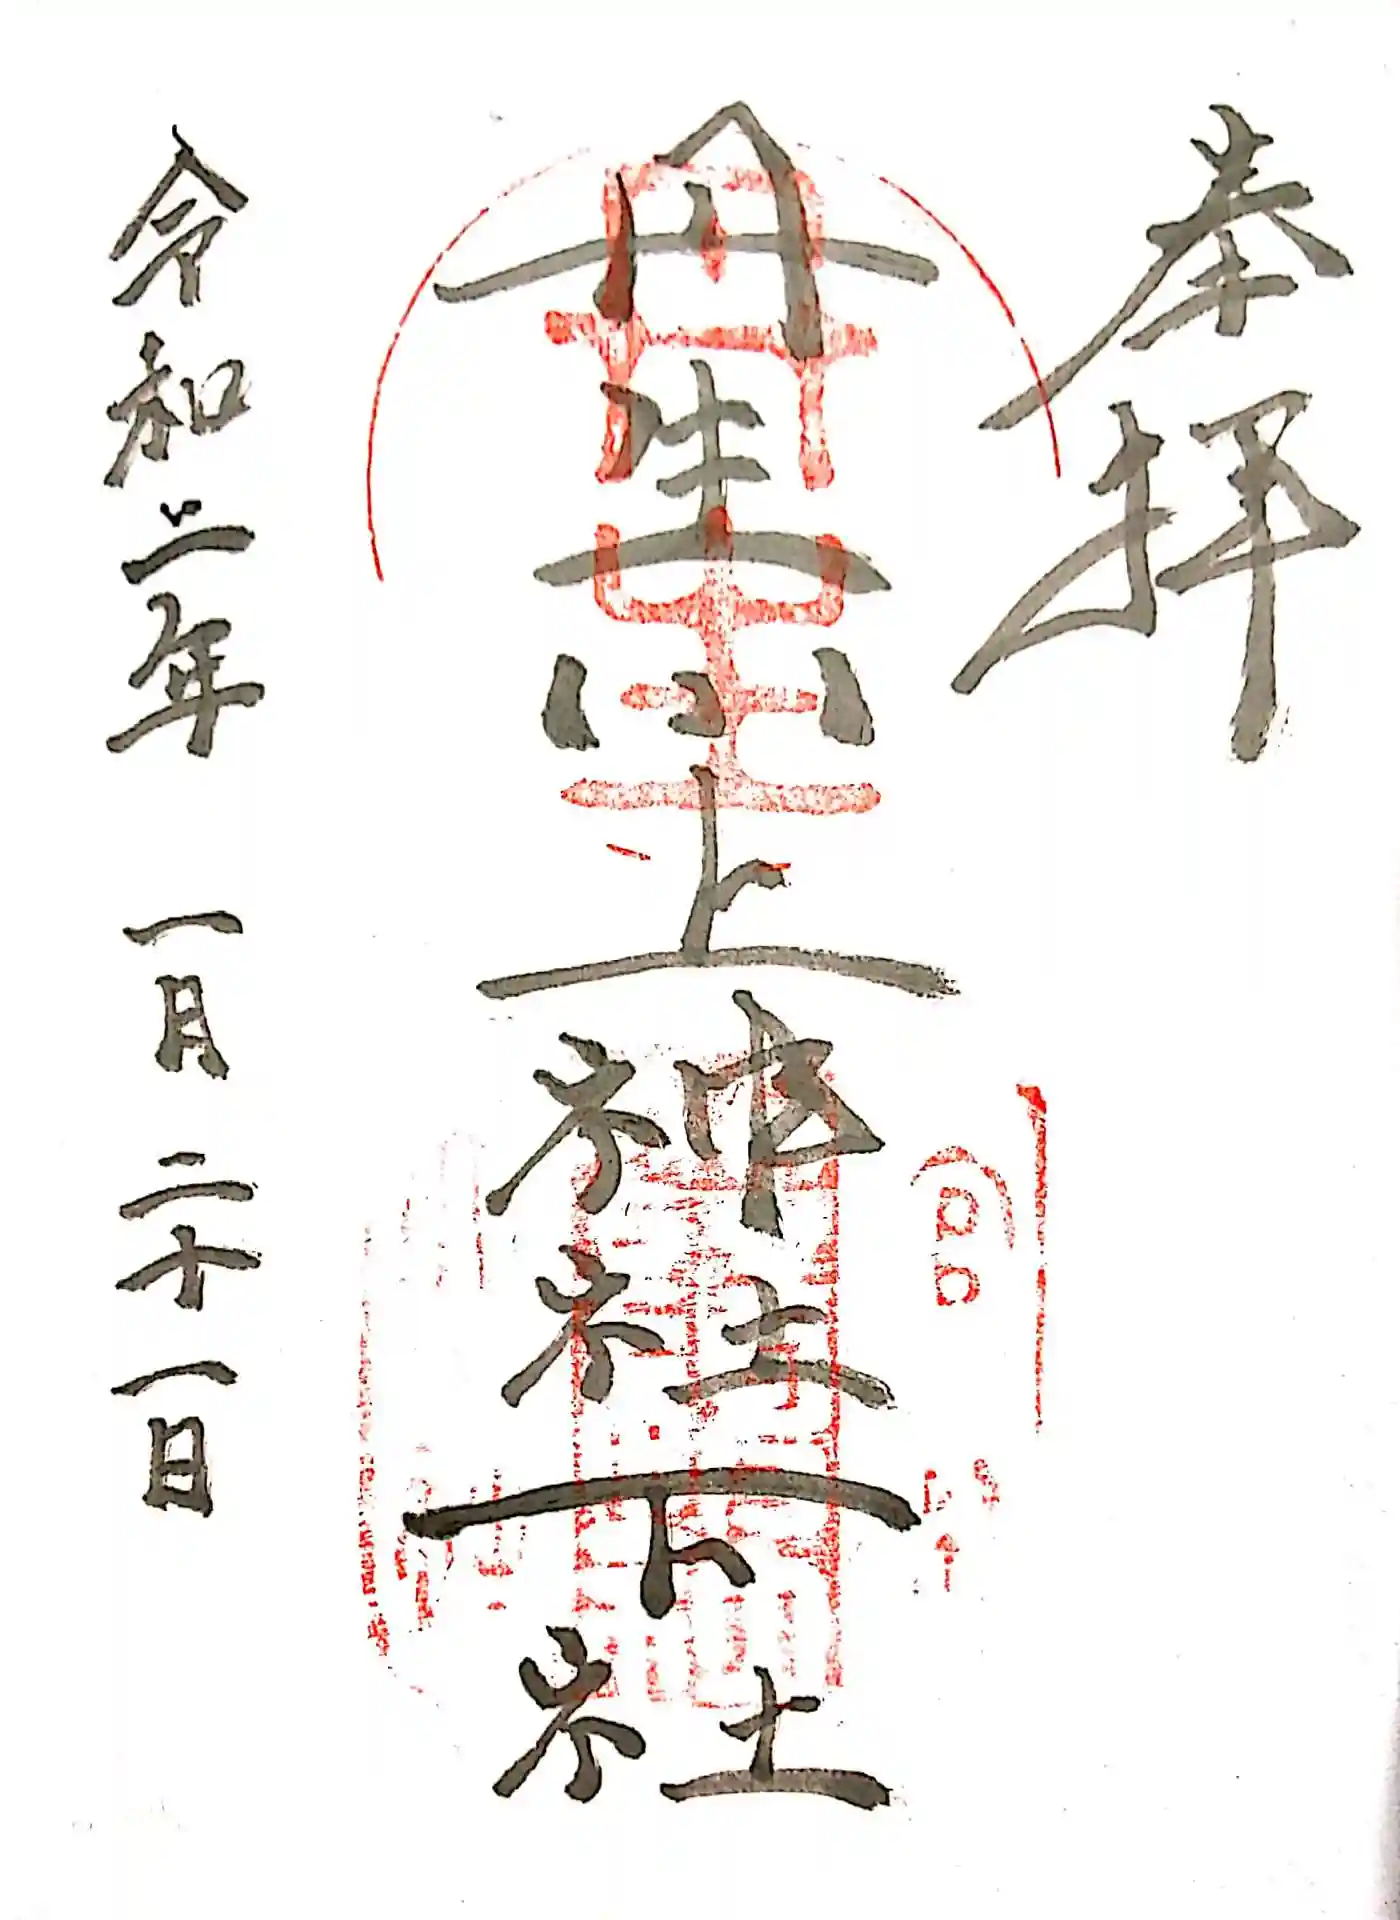 奉拝
丹生川上神社下社
令和二年 一月 二十一日